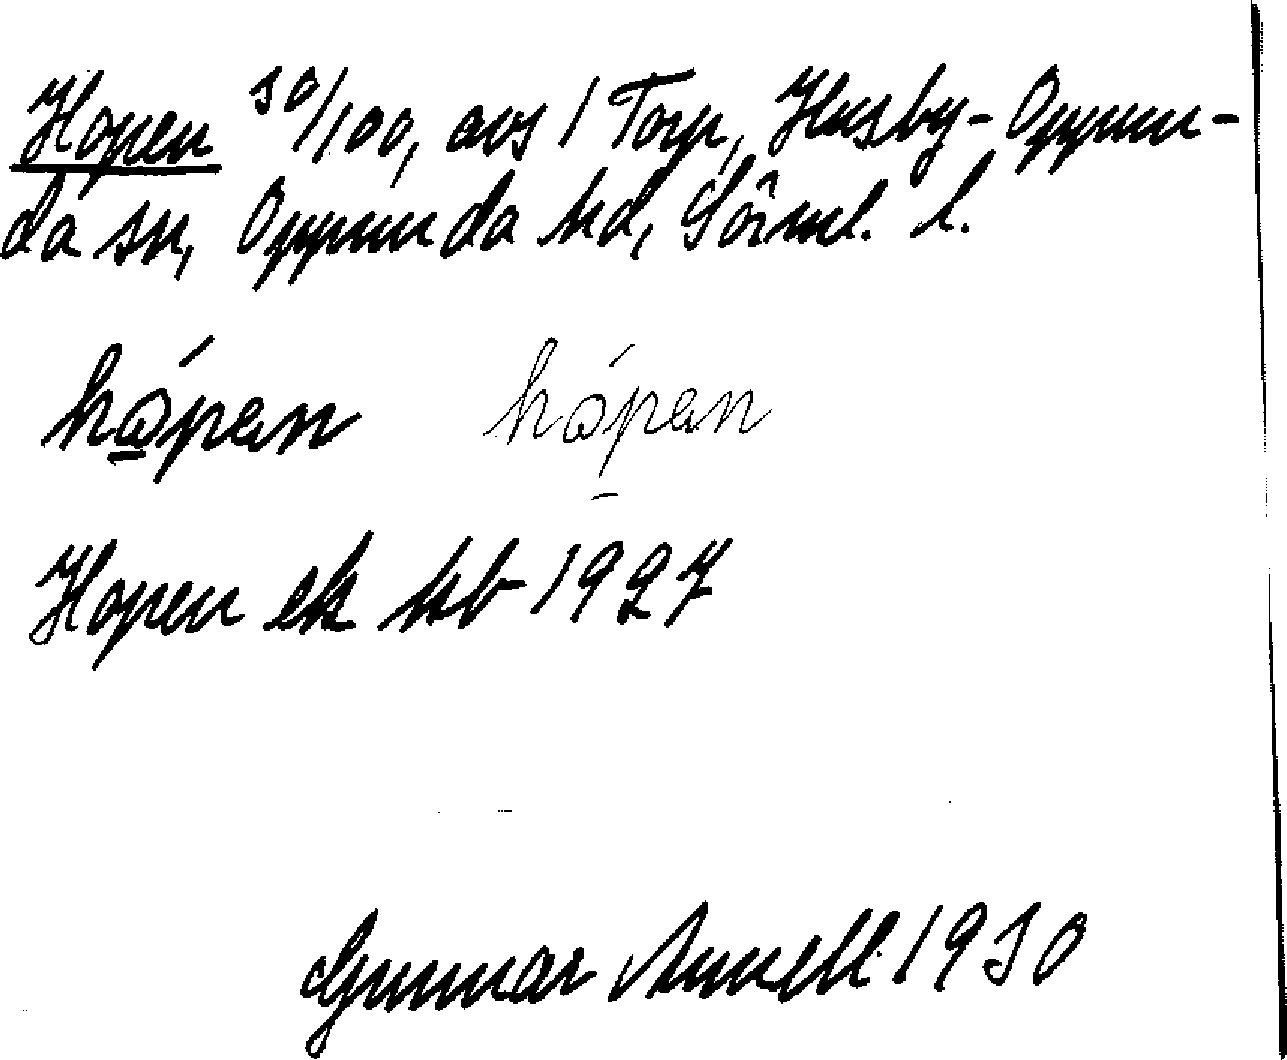 Hopen 30/100, avs / Torp, Husby-Oppun-
da sn, Oppunda hd, Sörml. l.
hópen hópen
Hopen ek kb 1927
Gunnar Annell 1930